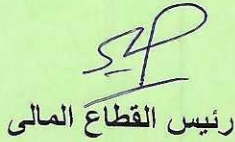 رئيس القطاع المالى